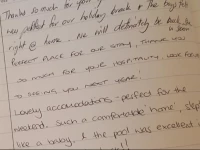 Thanks so much for your
was perfect for our holiday break & The boys felt
right @ home. We will definitely be back
soon
Perfect PLACE FOR OUR STAY, THANK YOU
SO MUCH FOR YOUR HOSPITALITY. LOOK FORWARD
TO SEEING YOU NEXT YEAR!
Lovely accommodations - perfect for the
weekend. Such a comfortable 'home', slept
like a baby, & the pool was excellent.